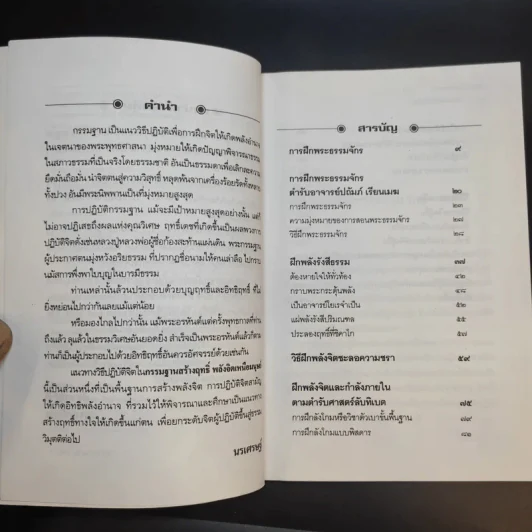 คำนำ
กรรมฐาน เป็นแนววิธีปฏิบัติเพื่อการฝึกจิตให้เกิดพลังอำนาจ
ในเจตนาของพระพุทธศาสนา มุ่งหมายให้เกิดปัญญาพิจารณาธรรม
ในสภาวธรรมที่เป็นจริงโดยธรรมชาติ อันเป็นธรรมดาเพื่อเลิกละความ
ยึดมั่นถือมั่น นำจิตตนสู่ความวิสุทธิ์ หลุดพ้นจากเครื่องร้อยรัด
ทั้งปวง อันมีพระนิพพานเป็นที่มุ่งหมายสูงสุด
การปฏิบัติกรรมฐาน แม้จะมีเป้าหมายสูงสุดอย่างนั้น แต่ก็
ไม่อาจปฏิเสธถึงผลแห่งคุณวิเศษ ฤทธิ์เดชที่เกิดขึ้นเป็นผลพวง
ปฏิบัติจิตดั่งเช่นหลวงปู่หลวงพ่อผู้ชื่อก้องสะท้านแผ่นดิน พระกรรมฐาน
ผู้ประกาศตนมุ่งหวังอริยธรรม ที่ปรากฏชื่อนามให้คนเล่าลือ
นมัสการพึ่งพาใบบุญในบารมีธรรม
ท่านเหล่านั้นล้วนประกอบด้วยบุญฤทธิ์และอิทธิฤทธิ์ ที่ไม่
ยิ่งหย่อนไปกว่ากันเลยแม้แต่น้อย
หรือมองไกลไปกว่านั้น แม้พระอรหันต์แต่ครั้งพุทธกาลที่ท่าน
ถึงแล้ว ลุแล้วในธรรมวิเศษอันยอดยิ่ง สำเร็จเป็นพระอรหันต์แล้วก็ตาม
ท่านก็เป็นผู้ประกอบไปด้วยอิทธิฤทธิ์อันควรอัศจรรย์ด้วยเช่นกัน
แนวทางวิธีปฏิบัติจิตในกรรมฐานสร้างฤทธิ์ พลังจิตเหนือมนุษย์
นี้เป็นส่วนหนึ่งที่เป็นพื้นฐานการสร้างพลังจิต การปฏิบัติจิตสามัญ
ให้เกิดอิทธิพลังอำนาจ ที่รวมไว้ให้พิจารณาและศึกษาเป็นแนวทาง
สร้างฤทธิ์ทางใจให้เกิดขึ้นแก่ตน เพื่อยกระดับจิตผู้ปฏิบัติขึ้นสู่ธรรม
วิมุตติต่อไป
นรเศรษฐ์
สารบัญ
การฝึกพระธรรมจักร ๙
การฝึกพระธรรมจักร
ตำรับอาจารย์ปถัมภ์ เรียนเมฆ ๒๐
การฝึกพระธรรมจักร ๒๓
ความมุ่งหมายของการสอนพระธรรมจักร ๒๘
วิธีฝึกพระธรรมจักร ๒๘
ฝึกพลังรังสีธรรม ๓๗
ต้องหายใจให้ทั่วท้อง ๔๒
กราบพระกระตุ้นพลัง ๔๘
เป็นอาจารย์ไยเรจำเป็น ๕๑
แผ่พลังรังสีปริมณฑล ๕๕
ประลองฤทธิ์ที่ชิคาโก ๕๗
วิธีฝึกพลังจิตชะลอความชรา ๕๙
ฝึกพลังจิตและกำลังภายใน
ตามตำรับศาสตร์ลับทิเบต ๗๕
การฝึกลังโกมหรือวิชาตัวเบาขั้นพื้นฐาน ๗๗
การฝึกลังโกมแบบพิสดาร ๘๒